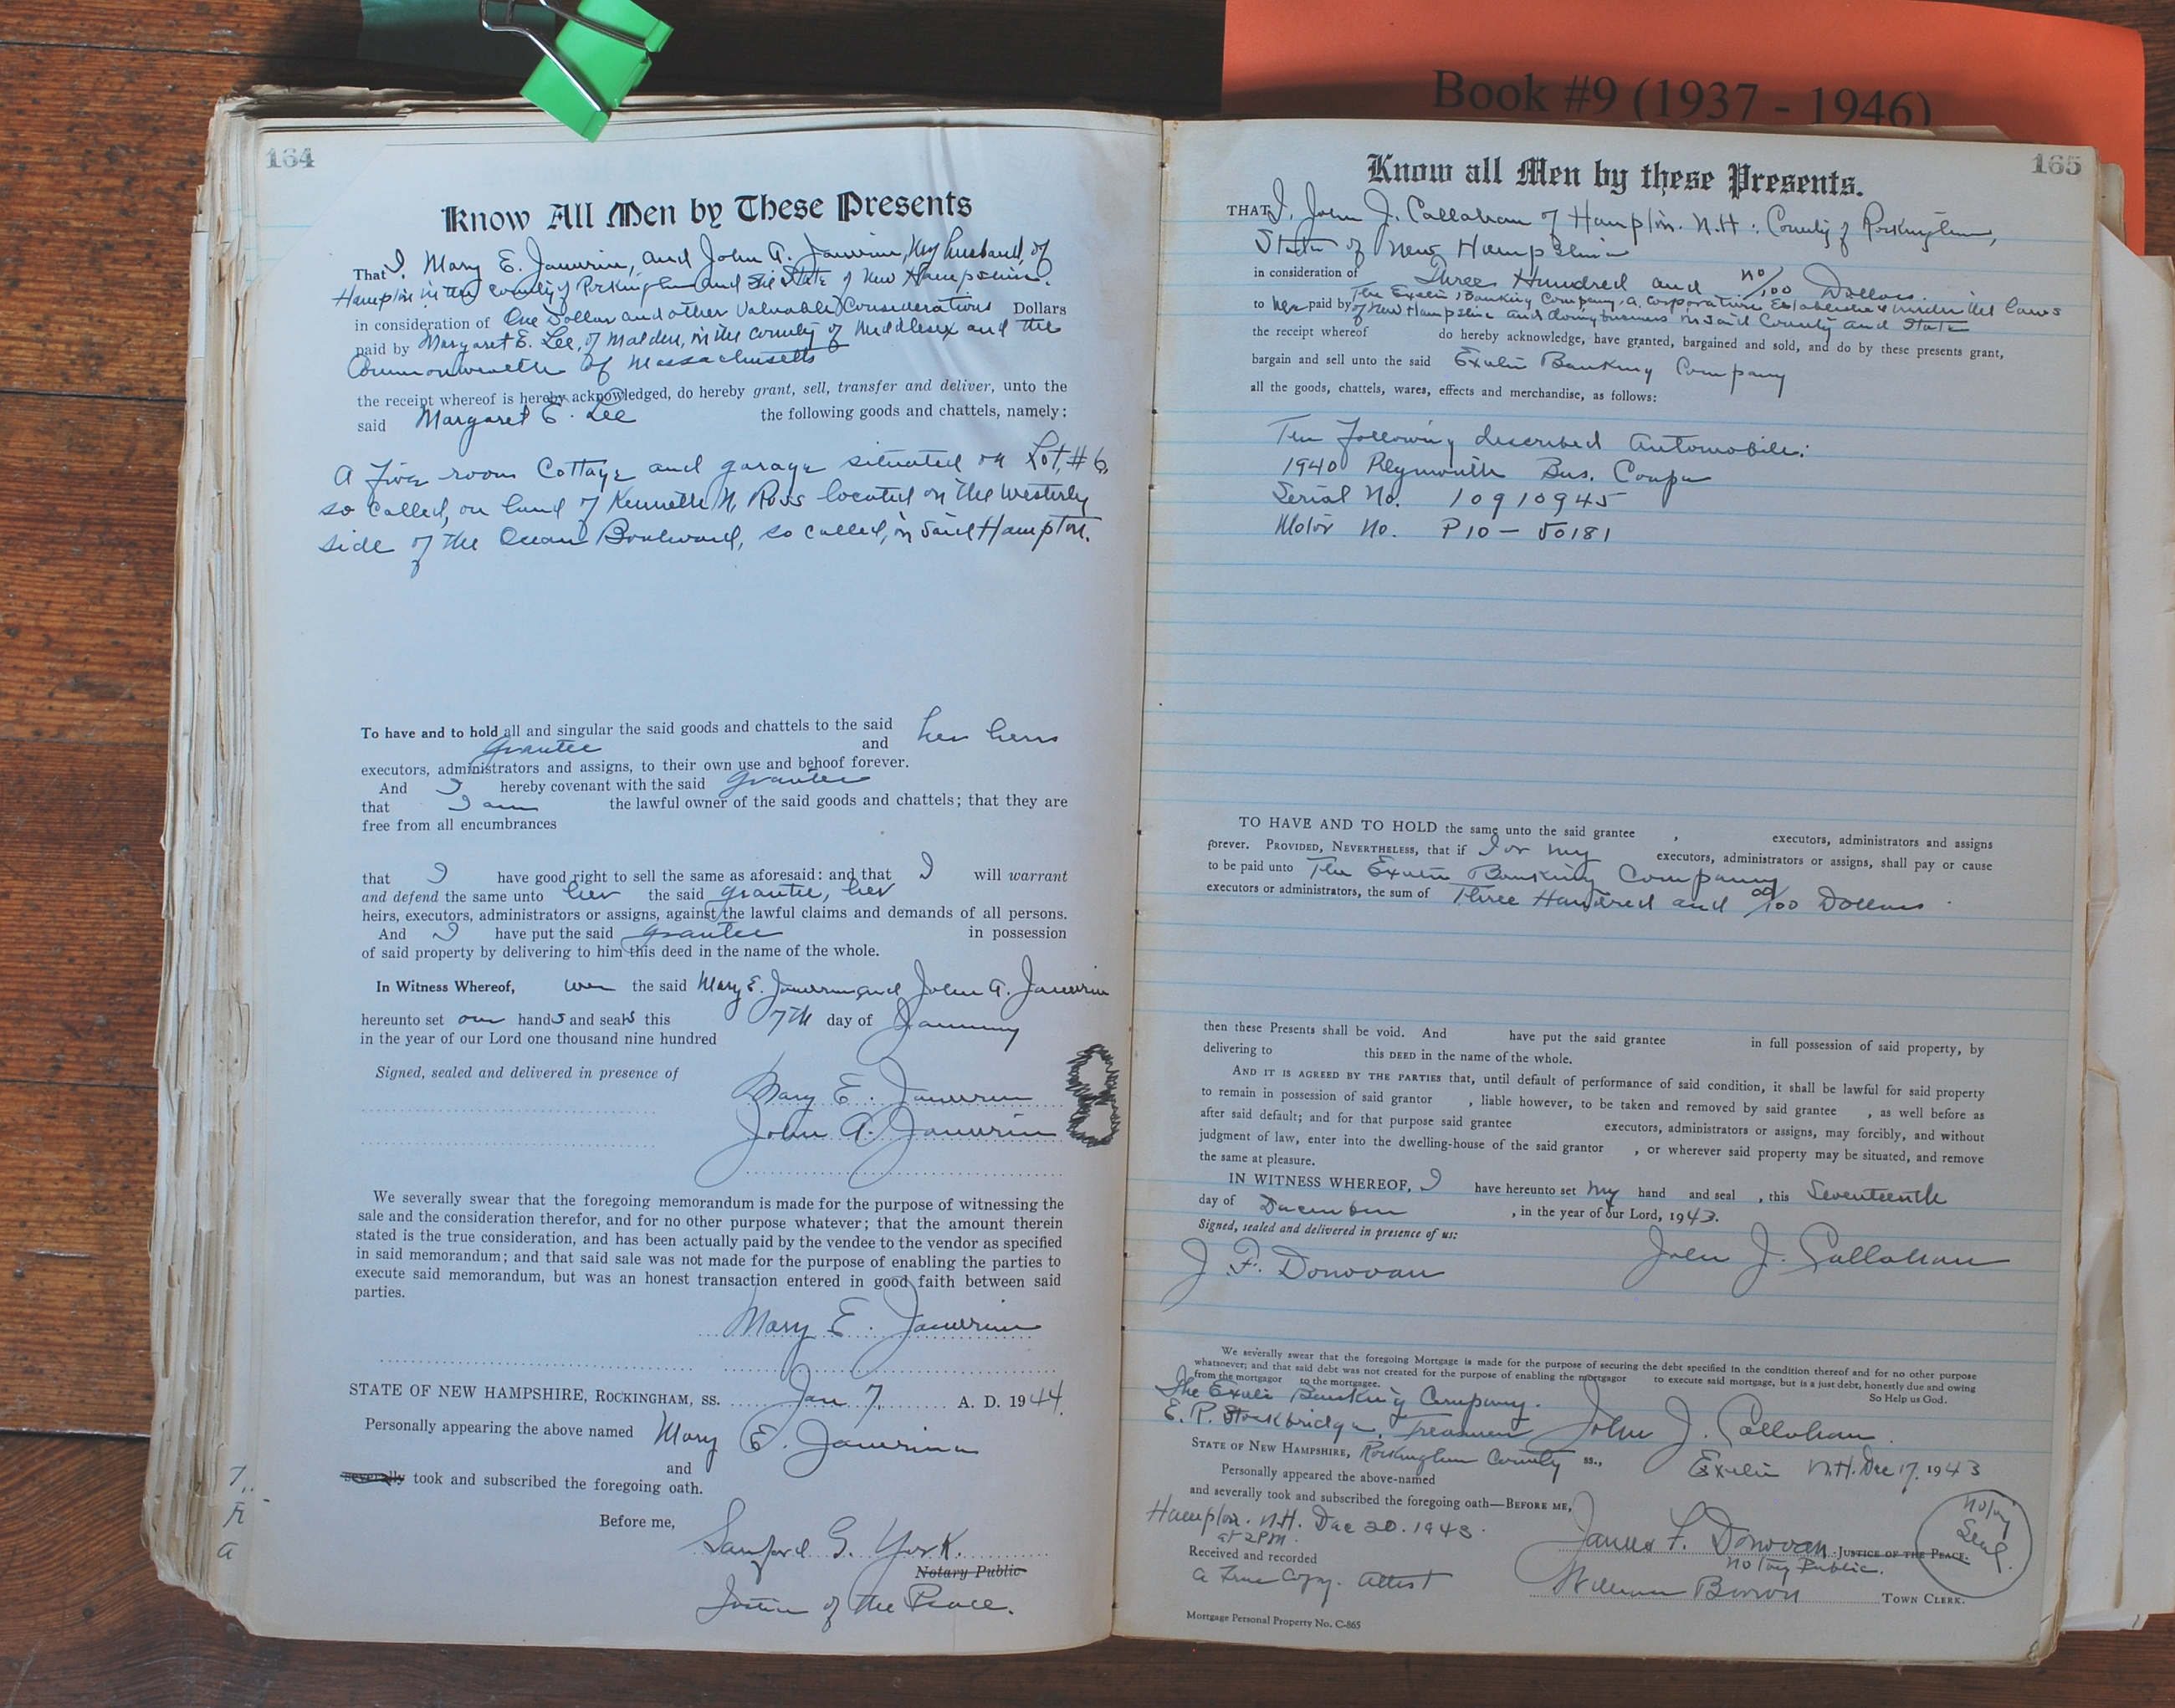 Book #9 (1937 - 1946)
164
Know All Men by These Presents
That I, Mary E. Janvrin, and John A. Janvrin, her husband, of
Hampton in the County of Rockingham and the State of New Hampshire.
in consideration of One Dollar and other Valuable Considerations Dollars
paid by Margaret E. Lee, of Malden, in the County of Middlesex and the
Commonwealth of Massachusetts
the receipt whereof is hereby acknowledged, do hereby grant, sell, transfer and deliver, unto the
said Margaret E. Lee the following goods and chattels, namely;
A five room Cottage and garage situated on Lot #6,
so called, on land of Kenneth N. Ross located on the westerly
side of the Ocean Boulevard, so called, in said Hampton.
To have and to hold all and singular the said goods and chattels to the said
grantee and her heirs
executors, administrators and assigns, to their own use and behoof forever.
And I hereby covenant with the said grantee
that I am the lawful owner of the said goods and chattels; that they are
free from all encumbrances
that I have good right to sell the same as aforesaid: and that I will warrant
and defend the same unto her the said grantee, her
heirs, executors, administrators or assigns, against the lawful claims and demands of all persons.
And I have put the said grantee in possession
of said property by delivering to him this deed in the name of the whole.
In Witness Whereof, we the said Mary E. Janvrin and John A. Janvrin
hereunto set our hands and seals this 7th day of January
in the year of our Lord one thousand nine hundred
Signed, sealed and delivered in presence of
Mary E. Janvrin
John A. Janvrin
We severally swear that the foregoing memorandum is made for the purpose of witnessing the
sale and the consideration therefor, and for no other purpose whatever; that the amount therein
stated is the true consideration, and has been actually paid by the vendee to the vendor as specified
in said memorandum; and that said sale was not made for the purpose of enabling the parties to
execute said memorandum, but was an honest transaction entered in good faith between said
parties.
Mary E. Janvrin
STATE OF NEW HAMPSHIRE, ROCKINGHAM, SS. Jan 7, A. D. 1944.
Personally appearing the above named Mary E. Janvrin
and
severally took and subscribed the foregoing oath.
Before me,
Sanford G. York.
Notary Public
Justice of the Peace.
165
Know all Men by these Presents.
THAT I, John J. Callahan of Hampton. N.H: County of Rockingham,
State of New Hampshire
in consideration of Three Hundred and no/100 Dollars.
to me paid by The Exeter Banking Company, a corporation Established under the laws
of New Hampshire and doing business in said County and State
the receipt whereof do hereby acknowledge, have granted, bargained and sold, and do by these presents grant,
bargain and sell unto the said Exeter Banking Company
all the goods, chattels, wares, effects and merchandise, as follows:
The following described Automobile:
1940 Plymouth Bus. Coupe
Serial No. 10910945
Motor No. P10-50181
TO HAVE AND TO HOLD the same unto the said grantee , executors, administrators and assigns
forever. PROVIDED, NEVERTHELESS, that if I or my executors, administrators or assigns, shall pay or cause
to be paid unto The Exeter Banking Company
executors or administrators, the sum of Three Hundred and 00/100 Dollars
then these Presents shall be void. And have put the said grantee in full possession of said property, by
delivering to this DEED in the name of the whole.
AND IT IS AGREED BY THE PARTIES that, until default of performance of said condition, it shall be lawful for said property
to remain in possession of said grantor , liable however, to be taken and removed by said grantee , as well before as
after said default; and for that purpose said grantee executors, administrators or assigns, may forcibly, and without
judgment of law, enter into the dwelling-house of the said grantor , or wherever said property may be situated, and remove
the same at pleasure.
IN WITNESS WHEREOF, I have hereunto set my hand and seal , this Seventeenth
day of December , in the year of our Lord, 1943.
Signed, sealed and delivered in presence of us:
J. F. Donovan John J. Callahan
We severally swear that the foregoing Mortgage is made for the purpose of securing the debt specified in the condition thereof and for no other purpose
whatsoever; and that said debt was not created for the purpose of enabling the mortgagor to execute said mortgage, but is a just debt, honestly due and owing
from the mortgagor to the mortgagee. So Help us God.
The Exeter Banking Company.
E. P. Stockbridge, Treasurer John J. Callahan.
STATE OF NEW HAMPSHIRE, Rockingham County ss., Exeter N.H. Dec 17, 1943
Personally appeared the above-named
and severally took and subscribed the foregoing oath—BEFORE ME,
Hampton. N.H. Dec 20. 1943.
at 2 PM.
James F. Donovan, JUSTICE OF THE PEACE.
Notary Public.
Notary Seal.
Received and recorded
A True Copy. Attest William Brown TOWN CLERK.
Mortgage Personal Property No. C-865